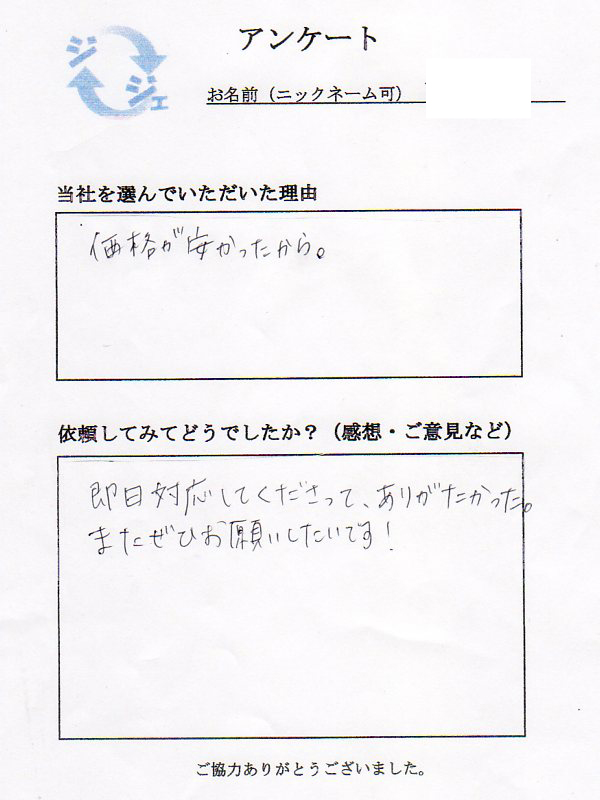 ジ
ジェ
アンケート
お名前（ニックネーム可）
当社を選んでいただいた理由
価格が安かったから。
依頼してみてどうでしたか？（感想・ご意見など）
即日対応してくださって、ありがたかった。
またぜひお願いしたいです！
ご協力ありがとうございました。